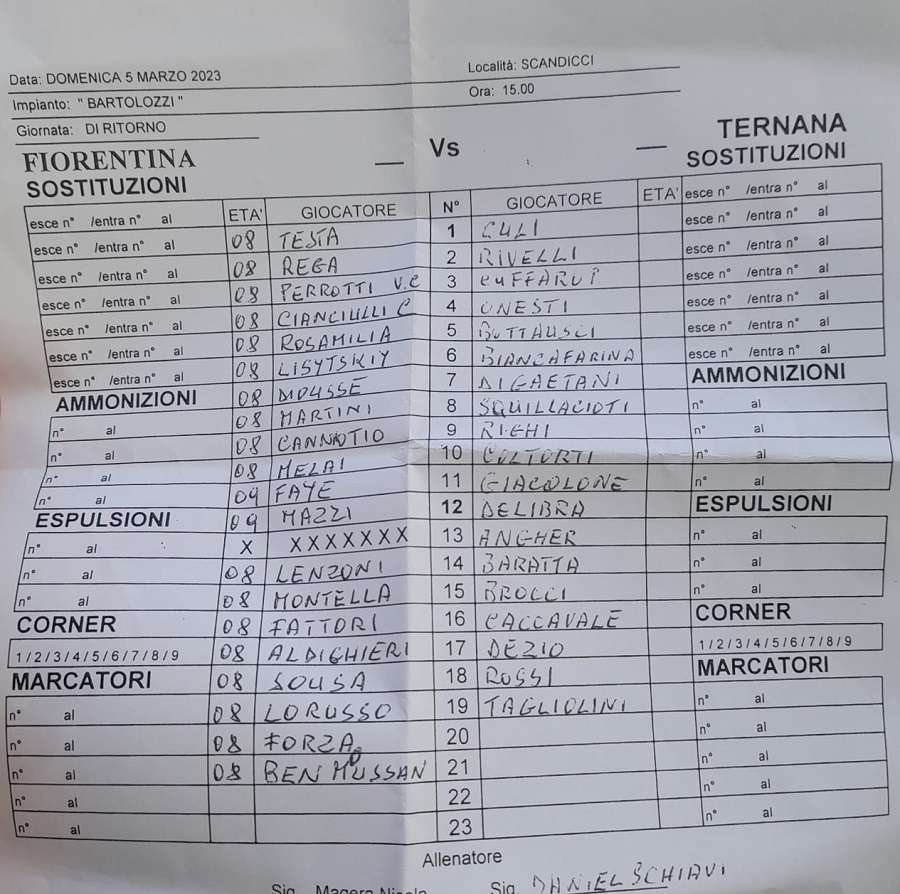 Data: DOMENICA 5 MARZO 2023 Località: SCANDICCI
Impianto: " BARTOLOZZI " Ora: 15.00
Giornata: DI RITORNO
FIORENTINA — Vs — TERNANA
SOSTITUZIONI SOSTITUZIONI
esce n° /entra n° al ETA' GIOCATORE N° GIOCATORE ETA' esce n° /entra n° al
esce n° /entra n° al 08 TESTA 1 CULI esce n° /entra n° al
esce n° /entra n° al 08 REGA 2 RIVELLI esce n° /entra n° al
esce n° /entra n° al 08 PERROTTI V.C 3 esce n° /entra n° al
esce n° /entra n° al 08 CIANCIULLI C 4 ONESTI esce n° /entra n° al
esce n° /entra n° al 08 ROSAMILIA 5 BUTTAUSCI esce n° /entra n° al
esce n° /entra n° al 08 LISYTSKIY 6 BIANCAFARINA esce n° /entra n° al
AMMONIZIONI 08 MOUSSE 7 DIGAETANI AMMONIZIONI
n° al 08 MARTINI 8 SQUILLACIOTI n° al
n° al 08 9 RIGHI n° al
n° al 08 MELAI 10 COLTORTI n° al
n° al 09 FAYE 11 GIACOLONE n° al
ESPULSIONI 09 MAZZI 12 DELIBRA ESPULSIONI
n° al X XXXXXXX 13 ANGHER n° al
n° al 08 LENZONI 14 BARATTA n° al
n° al 08 MONTELLA 15 BROCCI n° al
CORNER 08 FATTORI 16 CACCAVALE CORNER
1/2/3/4/5/6/7/8/9 08 ALDIGHIERI 17 DEZIO 1/2/3/4/5/6/7/8/9
MARCATORI 08 SOUSA 18 ROSSI MARCATORI
n° al 08 LORUSSO 19 TAGLIOLINI n° al
n° al 08 FORZA 20 n° al
n° al 08 BEN MUSSAN 21 n° al
n° al 22 n° al
n° al 23 n° al
Allenatore
Sig. Magera Sig. DANIEL SCHIAVI